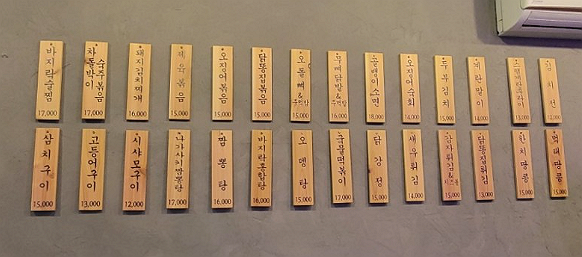 바지락술찜
17,000
차돌박이
숙주볶음
17,000
돼지김치찌개
16,000
제육볶음
15,000
오징어볶음
15,000
닭똥집볶음
15,000
오돌뼈
&
주먹밥
15,000
무뼈닭발
&
주먹밥
16,000
골뱅이소면
18,000
오징어숙회
14,000
두부김치
15,000
계란말이
삼치구이
15,000
고등어구이
13,000
시샤모구이
12,000
나가사키짬뽕탕
17,000
짬뽕탕
16,000
바지락홍합탕
16,000
오뎅탕
15,000
국물떡볶이
17,000
닭강정
15,000
새우튀김
14,000
감자튀김
15,000
닭똥집튀김
13,000
한치땅콩
15,000
먹태땅콩
15,000